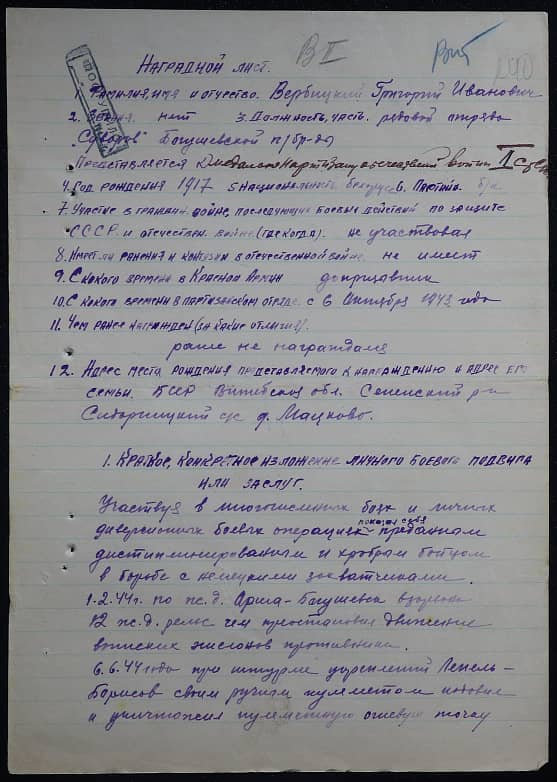 В II
Вит
240
ПОЛУПИЛ
Наградной лист.
Фамилия, имя и отчество. Вербицкий Григорий Иванович
2. Звания. нит 3. Должность, часть. рядовой отряда
Суворов Богушевской п/бр-ды
Представляется к медалью партизану отечественной войны II степ
4. Год рождения 1917 5 Национальность белорус 6. Партийн. б/п
7. Участие в граждан. войне, последующих боевых действий по защите
СССР и отечествен. войне (где когда). не участвовал
8. Имеет ли ранения и контузии в отечественной войне. не имеет
9. С какого времени в Красной Армии допризывник
10. С какого времени в партизанском отряде. с 6 Октября 1943 года
11. Чем ранее награжден (за какие отличия).
ранее не награждался
12. Адрес места рождения представляемого к награждению и адрес его
семьи. БССР Витебская обл. Сенненский р-н
с/с д. Мацково.
1. Краткое, конкретное изложение личного боевого подвига
или заслуг.
Участвуя в многочисленных боях и личных
диверсионных боевых операциях показал себя преданным
дисциплинированным и храбрым бойцом
в борьбе с немецкими захватчиками.
1.2.44г. по ж.д. Орша-Богушевск взорвал
12 ж.д. рельс чем приостановил движение
воинских эшелонов противника.
6.6.44 года при штурме укреплений Лепель-
Борисов своим ручным пулеметом подавил
и уничтожил пулеметную огневую точку